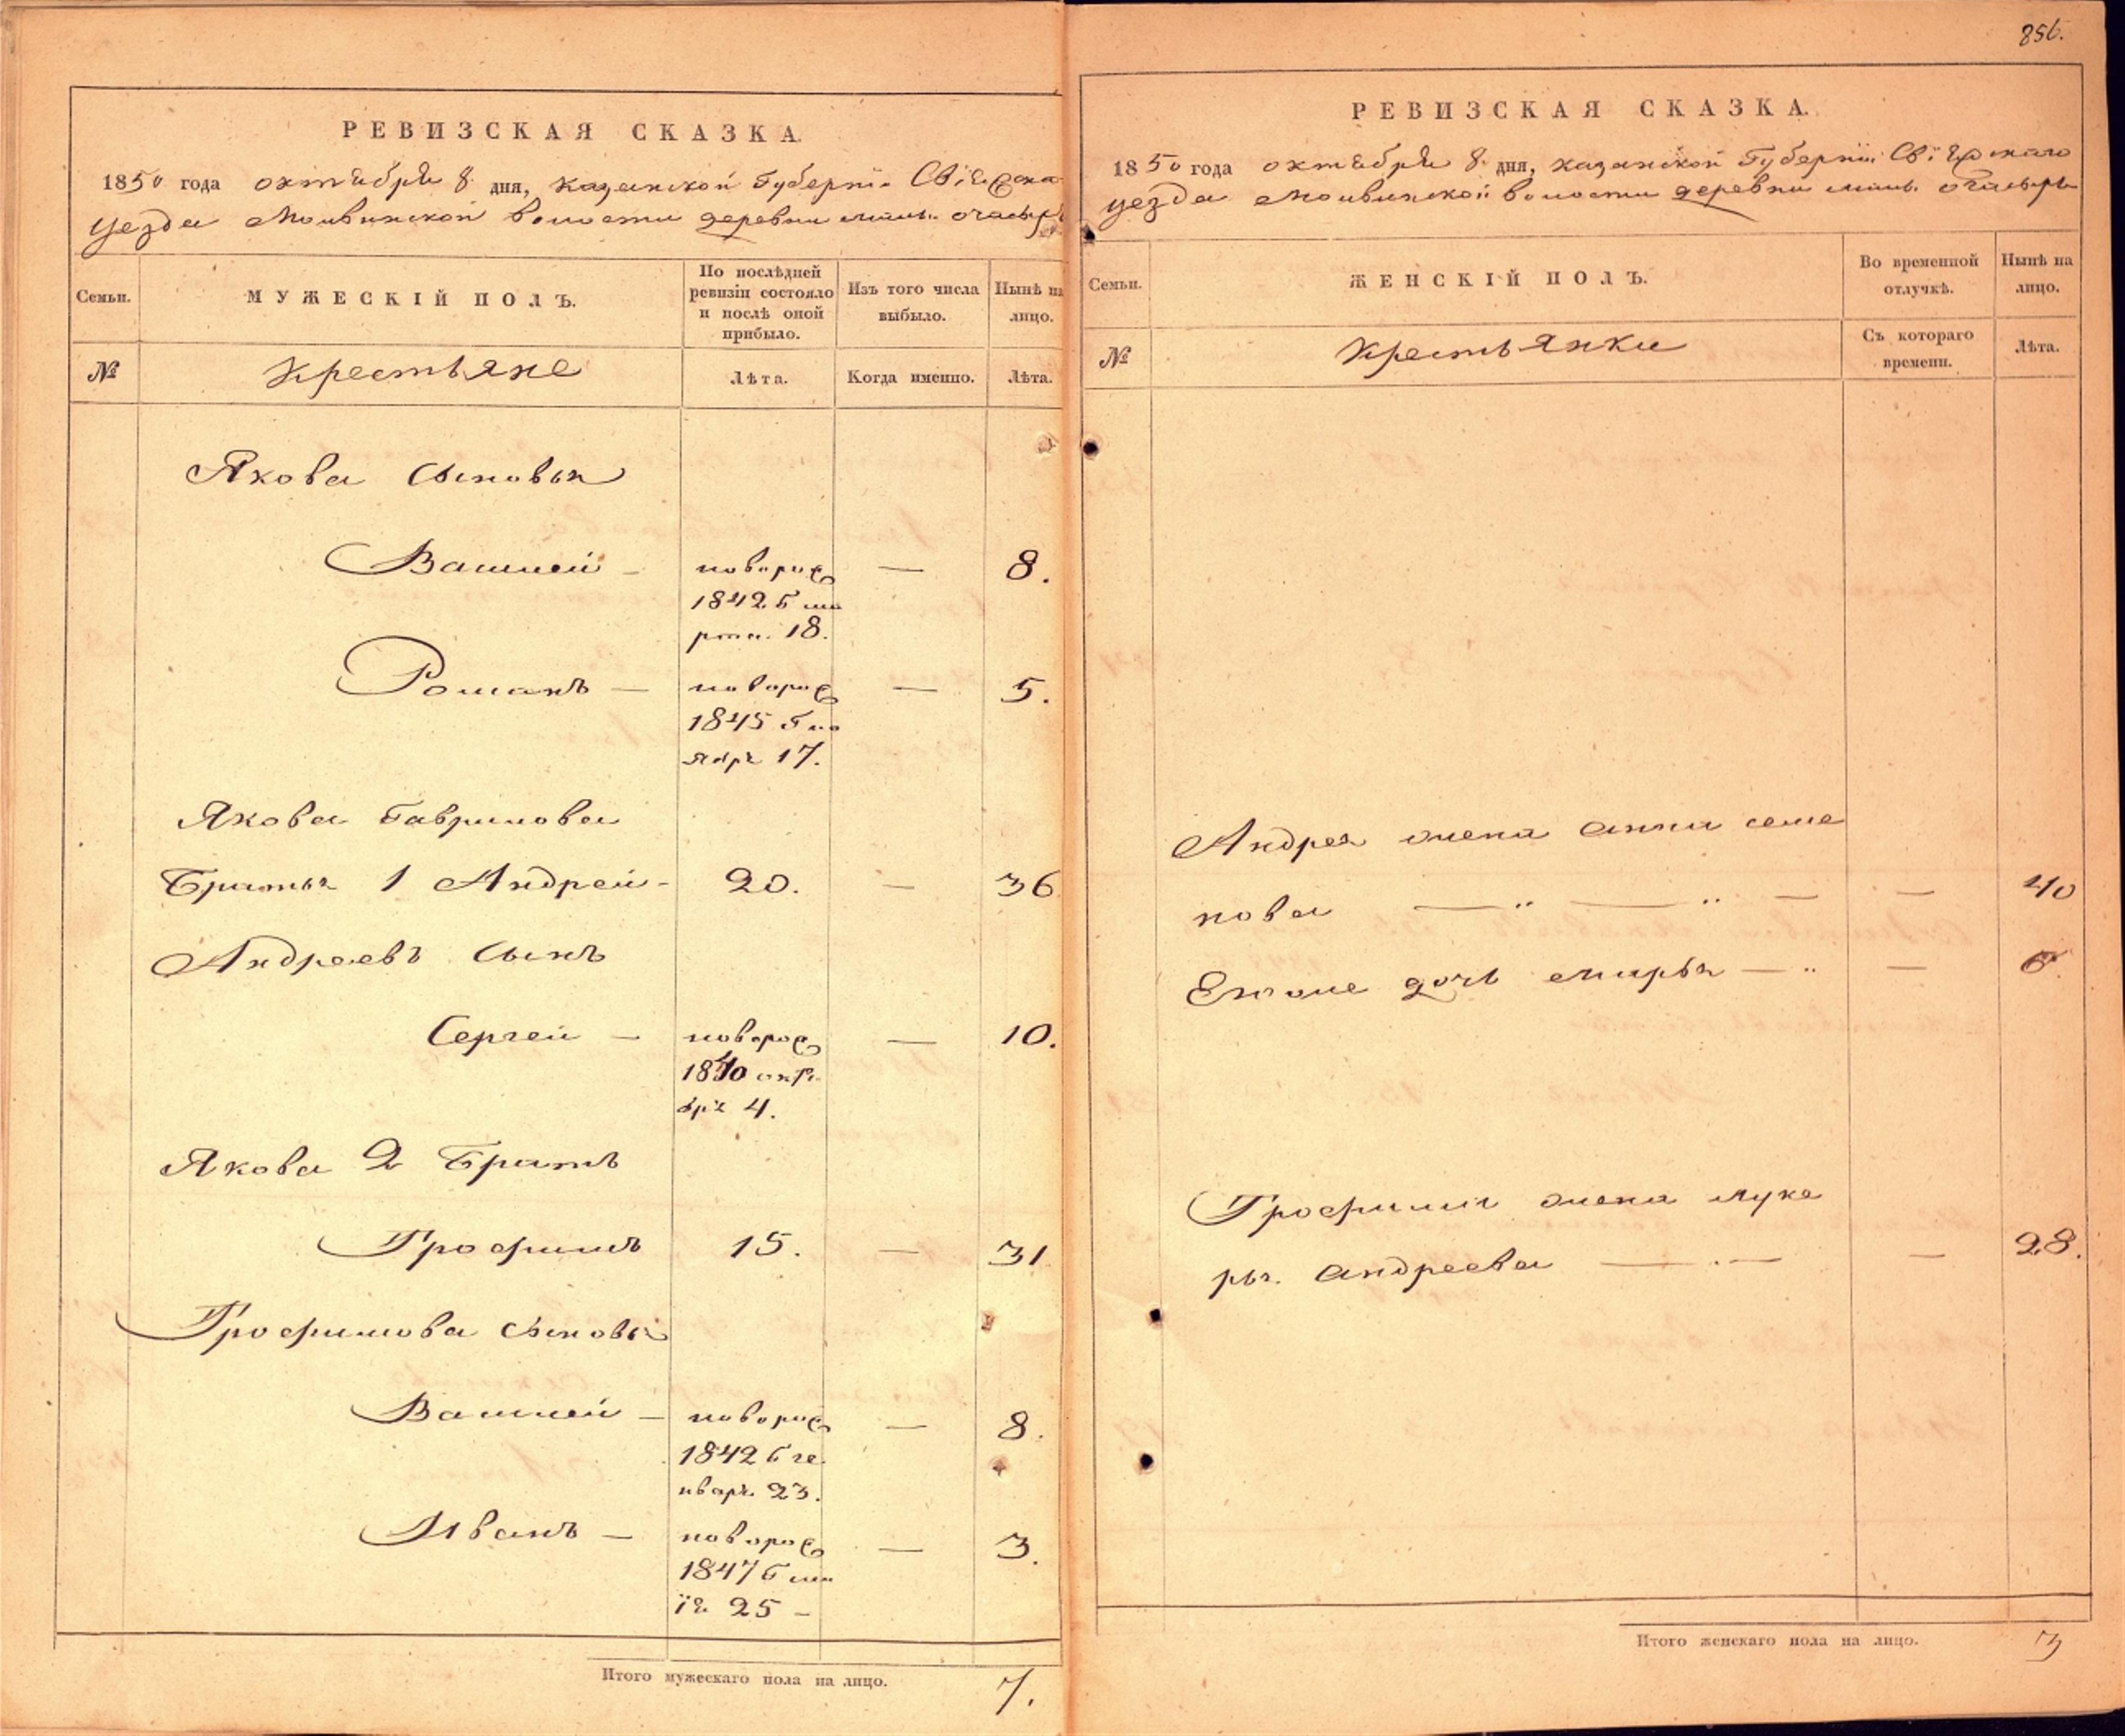 РЕВИЗСКАЯ СКАЗКА.
1850 года октября 8 дня, Казанской Губернiи Свiяжска
уезда Моквинской волости деревни мал. очасыр
Семьи.
МУЖЕСКIЙ ПОЛЪ.
По послѣдней ревизiи состояло и послѣ оной прибыло.
Изъ того числа выбыло.
Нынѣ на лицо.
№
Крестьяне
Лѣта.
Когда именно.
Лѣта.
Якова сыновья
Василей — новорож — 8.
1842 Г ма
рта. 18.
Романъ — новорож — 5.
1845 Г но
ября 17.
Якова Гаврилова
Братья 1 Андрей - 20. — 36
Андреевъ сынъ
Сергей — новорож — 10.
1840 октя
бря 4.
Якова 2 Братъ
Трофимъ 15. — 31
Трофимова сыновья
Василей — новорож — 8.
1842 Г ге
нваря 23.
Иванъ — новорож — 3.
1847 Г ма
iя 25 —
Итого мужескаго пола на лицо. 7.
856.
РЕВИЗСКАЯ СКАЗКА.
1850 года октября 8 дня, Казанской Губернiи Свiяжскаго
уезда Моквинской волости деревни мал. очасыръ
Семьи.
ЖЕНСКIЙ ПОЛЪ.
Во временной отлучкѣ.
Нынѣ на лицо.
№
Крестьянки
Съ котораго времени.
Лѣта.
Андрея жена анна семе
нова — " — " — — 40
Егоже дочь марья — " — 6.
Трофима жена луке
рья. андреева — . — — 28.
Итого женскаго пола на лицо. 3